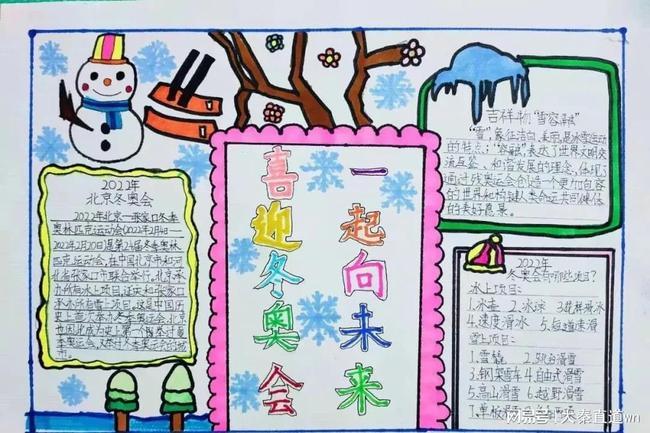 喜迎冬奥会
一起向未来
2022年
北京冬奥会
2022年北京—张家口冬季
奥林匹克运动会(2022年2月4日—
2022年2月20日)是第24届冬季奥林
匹克运动会,在中国北京市和河
北省张家口市联合举行,北京承
办所有冰上项目,延庆和张家口
承办所有雪上项目,这是中国历
史上首次举办冬季奥运会,北京
市。
吉祥物"雪容融"
"雪"象征洁白、美丽,是冰雪运动
的特点;"容融"表达了世界文明交
流互鉴、和谐发展的理念,体现了
通过残奥运会创造一个更加包容
的世界和构建人类命运共同体
的美好愿景。
2022年
冬奥会有哪些项目?
冰上项目:
1.冰壶 2.冰球 3.花样滑冰
4.速度滑冰 5.短道速滑
雪上项目:
1.雪橇 2.跳台滑雪
3.钢架雪车 4.自由式滑雪
5.高山滑雪 6.越野滑雪
7.单板滑雪
搜狐号@大秦直道wn